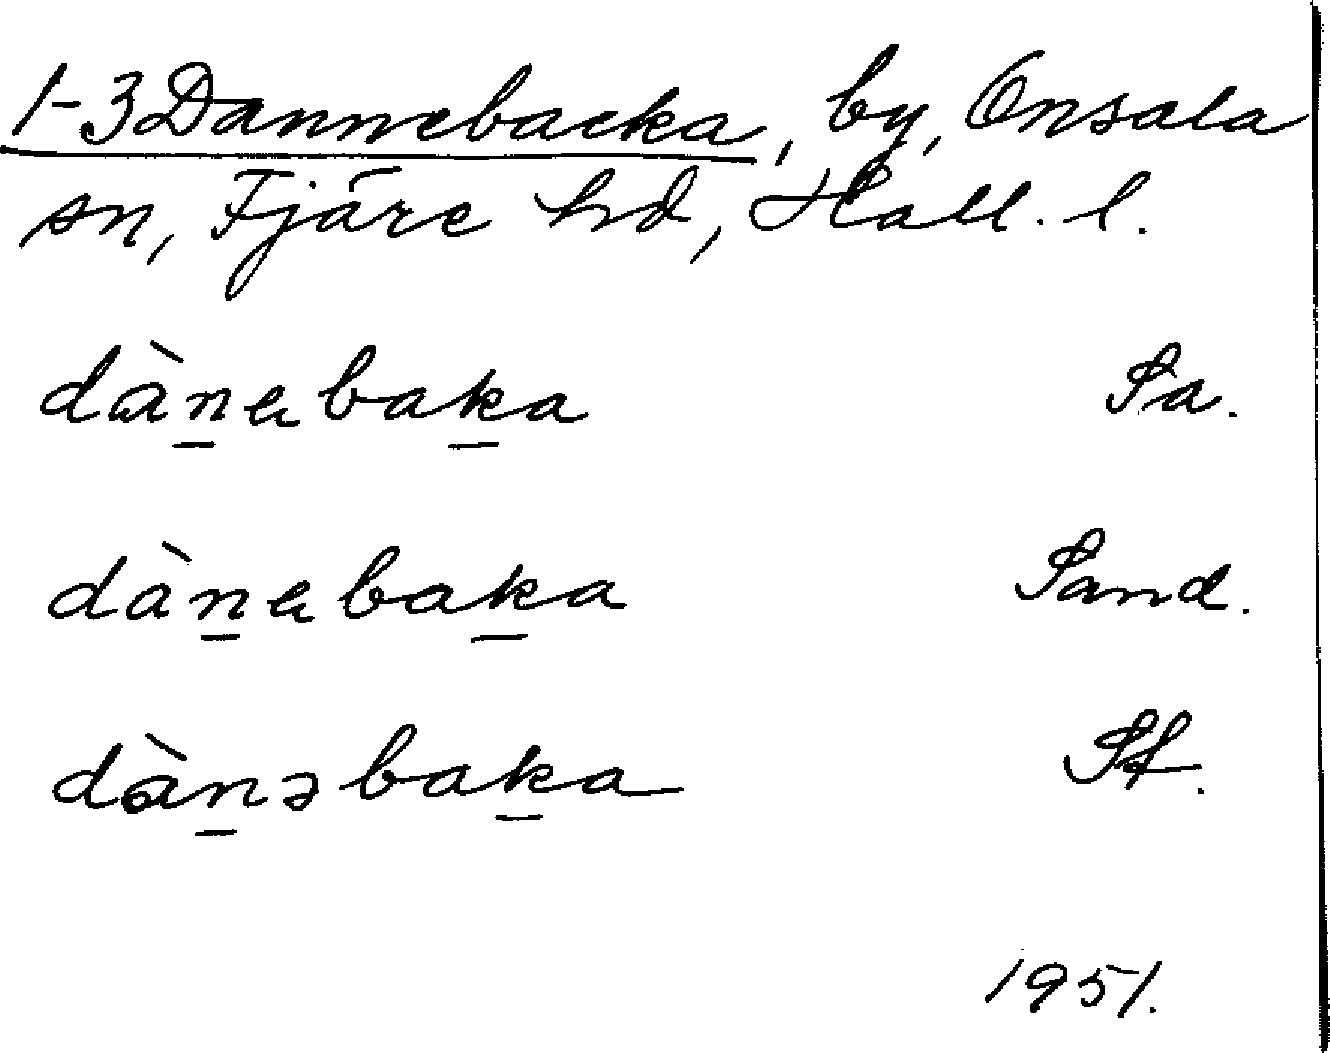 1-3 Dannebacka, by, Onsala
sn, Fjäre hd, Hall. l.
dàn̲ebak̲a Sa.
dàn̲ebak̲a Sand.
dàn̲əbak̲a Sf.
1951.